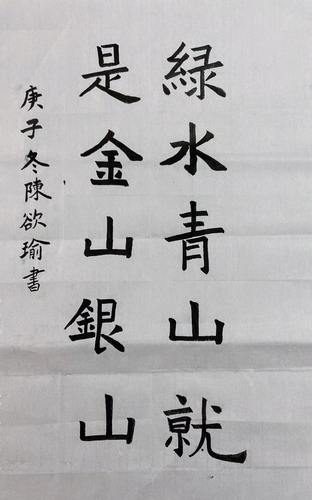 綠水青山就
是金山銀山
庚子冬陳欲瑜書